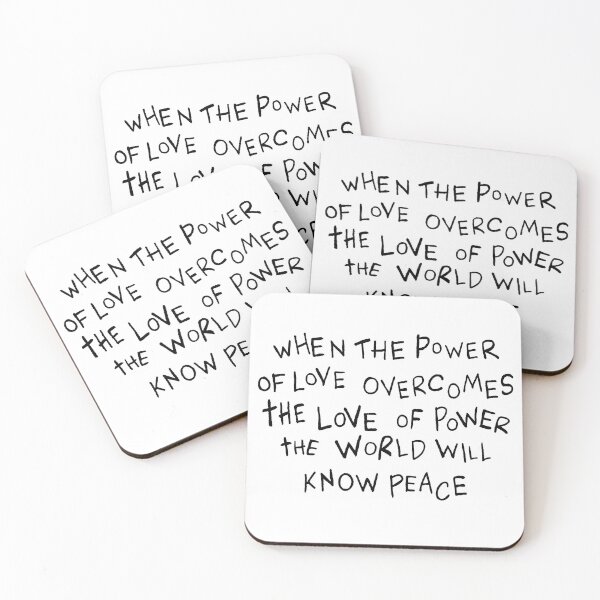 WHEN THE POWER
OF LOVE OVERCOMES
THE LOVE OF POW
WIL
WHEN THE POWER
OF LOVE OVERCOMES
THE LOVE OF POWER
THE WORLD WILL
WHEN THE POWER
OF LOVE OVERCOMES
THE LOVE OF POWER
THE WORLD WILL
KNOW PE
WHEN THE POWER
OF LOVE OVERCOMES
THE LOVE OF POWER
THE WORLD WILL
KNOW PEACE